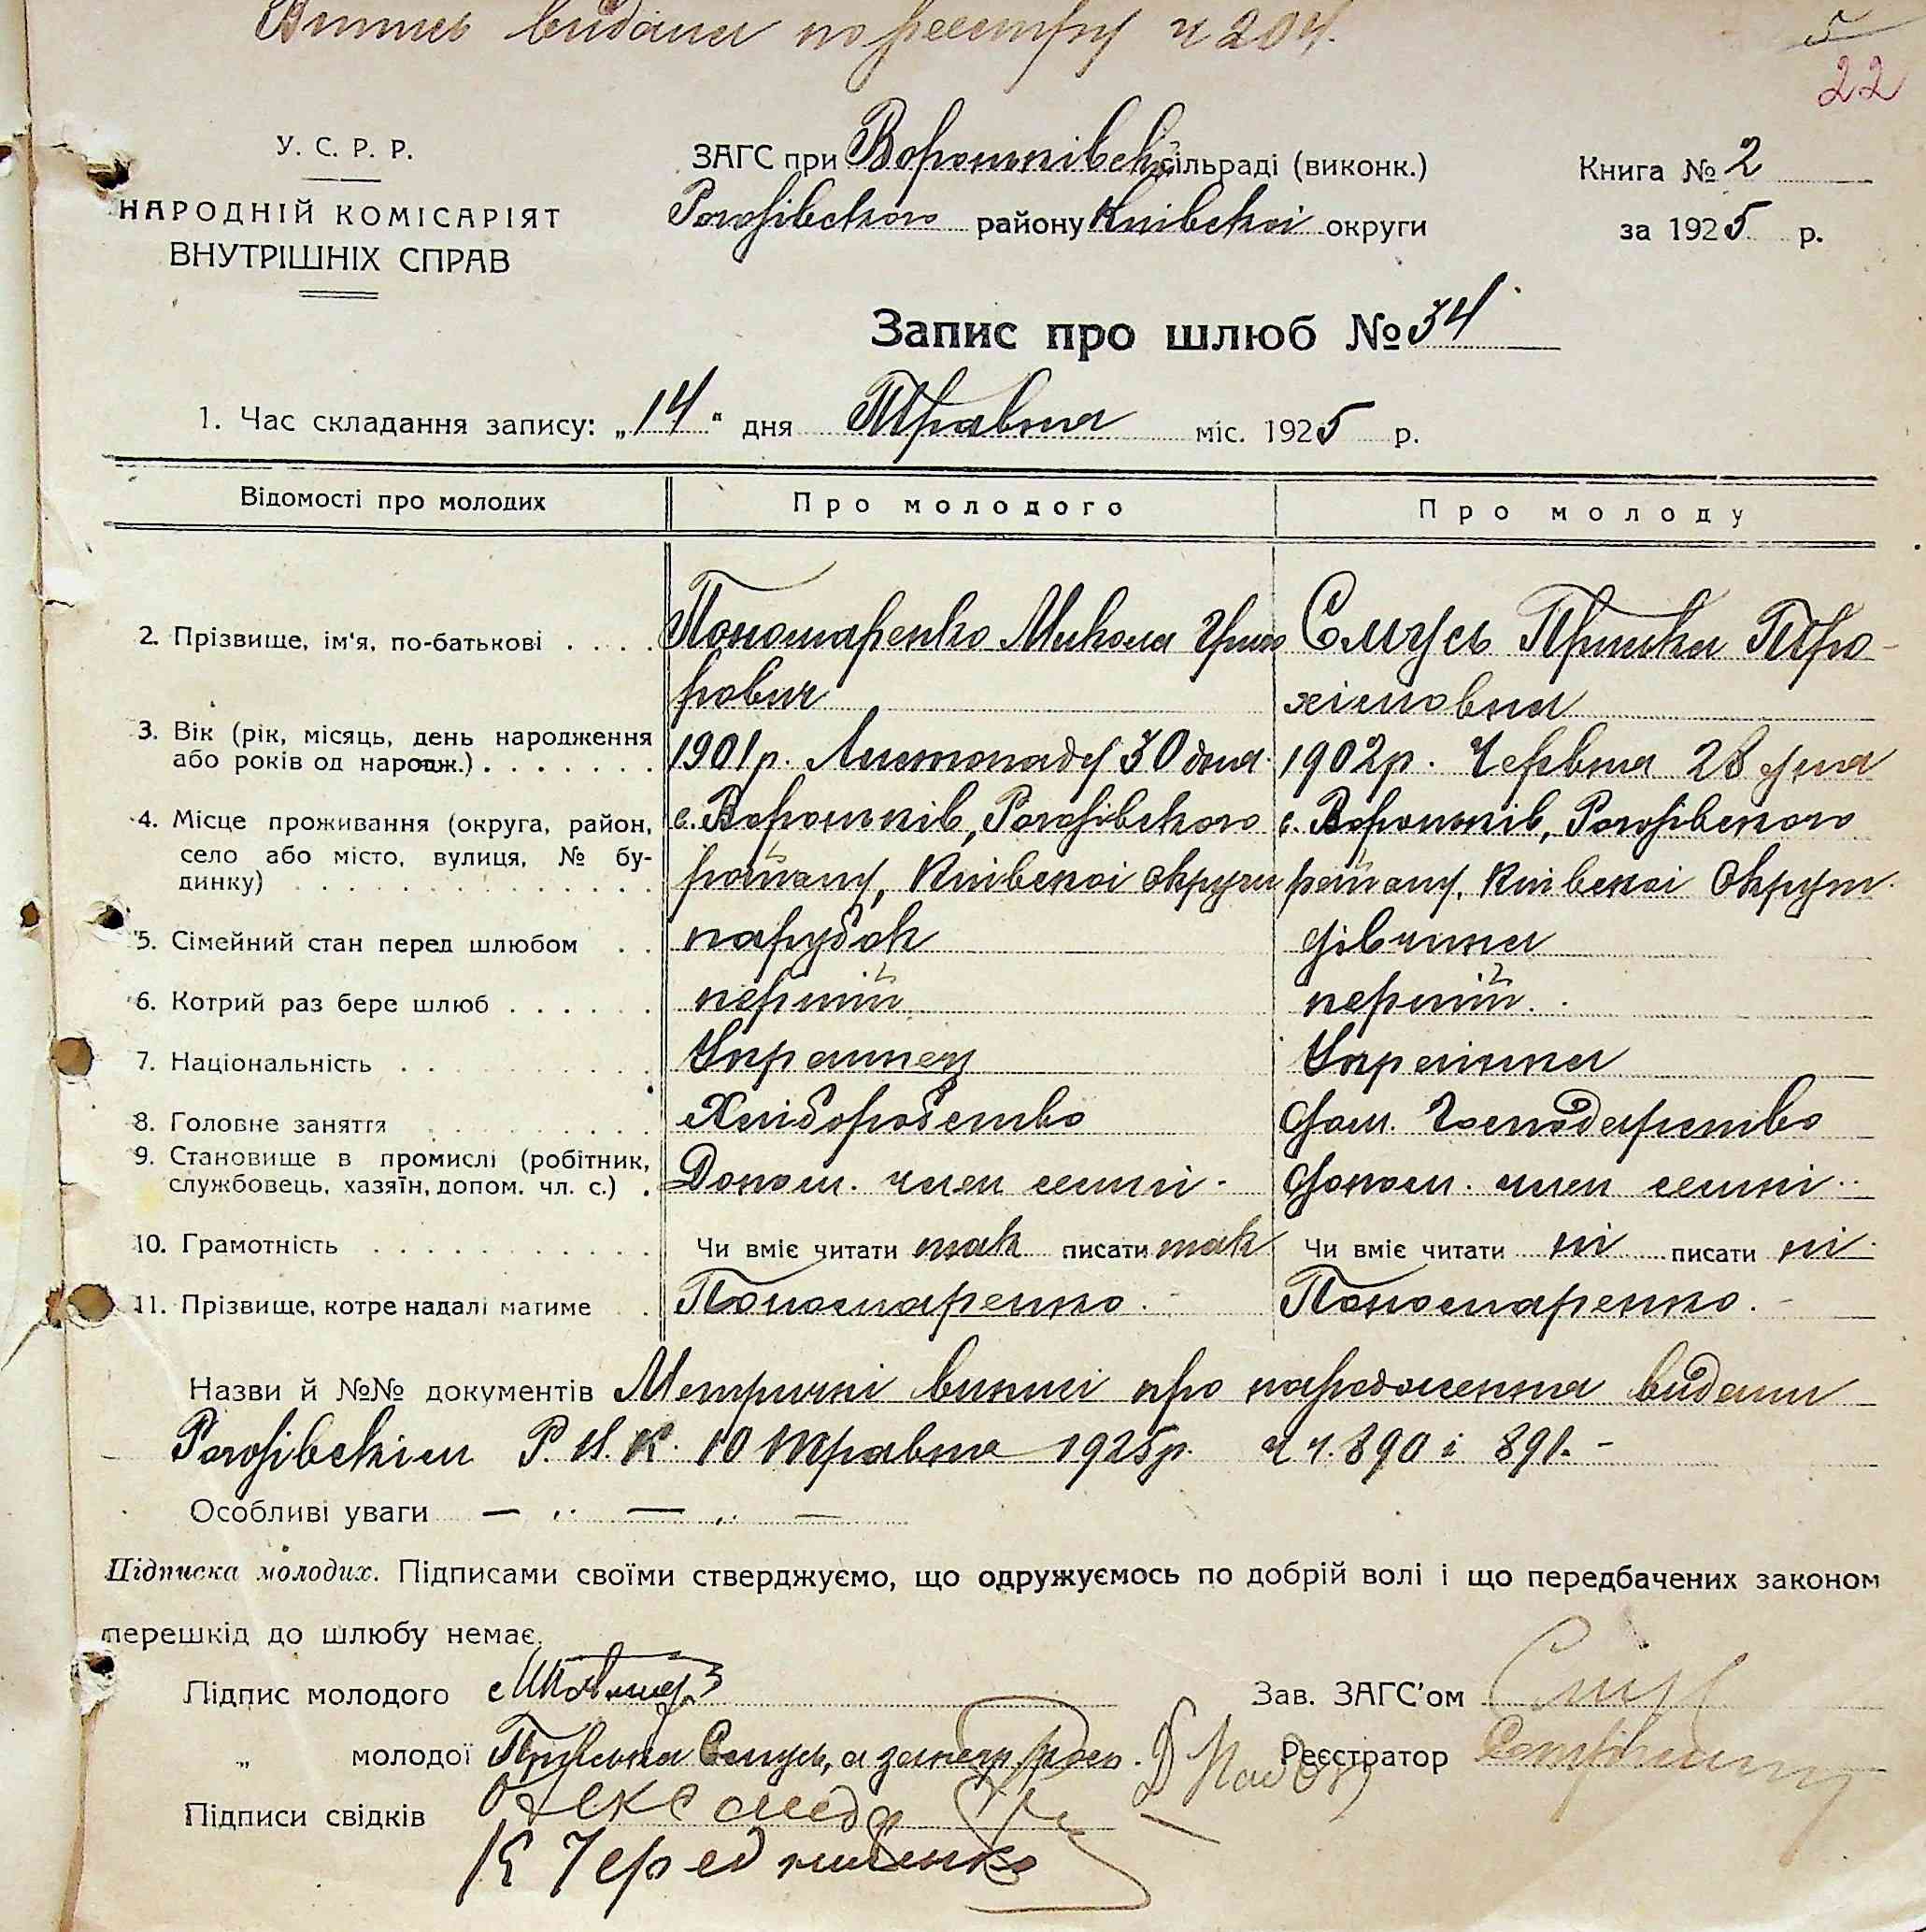 Витяг видани по реєстру ч 204.
5
22
У. С. Р. Р.
НАРОДНІЙ КОМІСАРІЯТ
ВНУТРІШНІХ СПРАВ
ЗАГС при Вороньківській сільраді (виконк.)
Рогозівського району Київської округи
Книга № 2
за 1925 р.
Запис про шлюб № 34
1. Час складання запису: „14" дня Травня міс. 1925 р.
Відомості про молодих
Про молодого
Про молоду
2. Прізвище, ім'я, по-батькові . . . . Пономаренко Микола Григо Смусь Пріська Тро-
рович хімовна
3. Вік (рік, місяць, день народження або років од народж.) . . . . . . . 1901р. Листопаду 30 дня. 1902р. Червня 28 дня
4. Місце проживання (округа, район, село або місто, вулиця, № будинку) с. Вороньків, Рогозівського с. Вороньків, Рогозівського
району, Київскоі округи району, Київскоі Округи.
5. Сімейний стан перед шлюбом . . парубок дівчина
6. Котрий раз бере шлюб . . . . . . перший перший.
7. Національність . . . . . . . . . . Українец Українка
8. Головне заняття . . . . . . . . . Хліборобство дом. Господарство
9. Становище в промислі (робітник, службовець, хазяїн, допом. чл. с.) . Допом. член семпі. допом. член семпі.
10. Грамотність . . . . . . . . . . . Чи вміє читати так писати так Чи вміє читати ні писати ні.
11. Прізвище, котре надалі матиме . . Пономаренко. Пономаренко.
Назви й №№ документів Метричні виписі про народження видани
Рогозівскім Р. И. К. 10 Травня 1925р. ч ч. 890 і 891. -
Особливі уваги — ,, — ,, —
Підписка молодих. Підписами своїми стверджуємо, що одружуємось по добрій волі і що передбачених законом
перешкід до шлюбу немає.
Підпис молодого
Зав. ЗАГС'ом
„ молодої Пріська Смусь, а за неї
Реєстратор
Підписи свідків
К Чередниченко